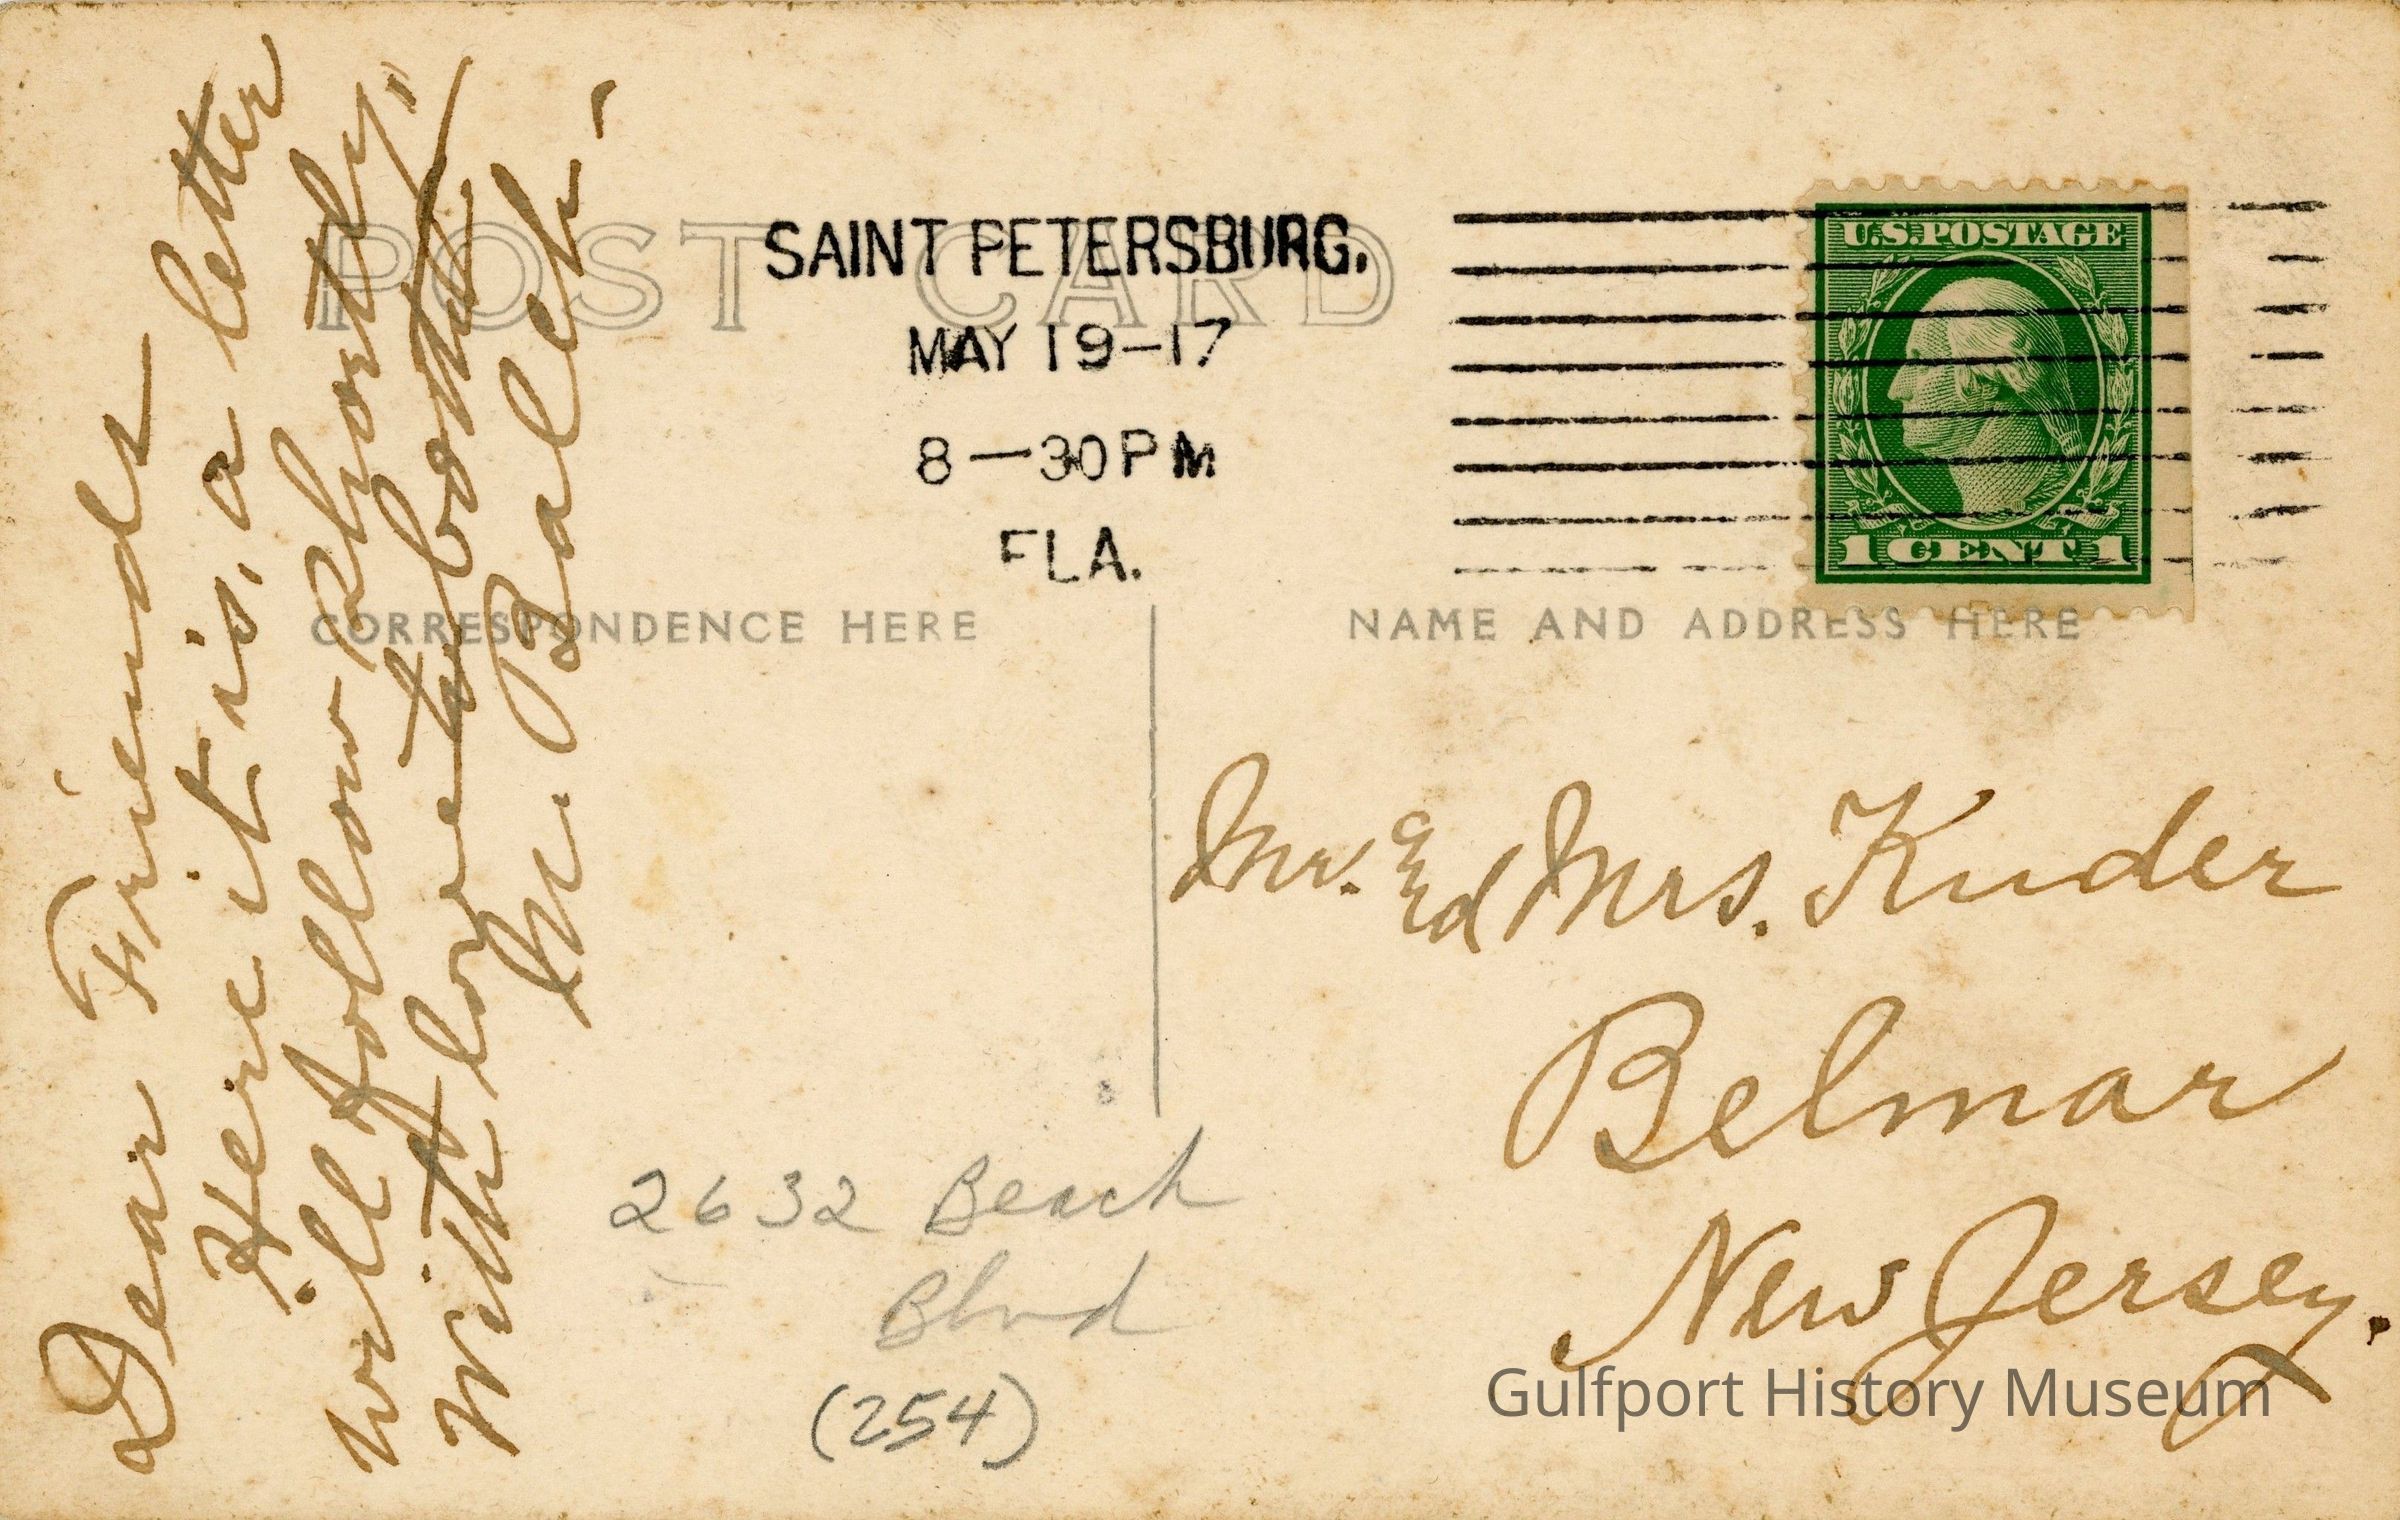 POST CARD
SAINT PETERSBURG.
MAY 19-17
8-30PM
FLA.
U.S. POSTAGE
1 CENT 1
CORRESPONDENCE HERE
NAME AND ADDRESS HERE
Dear Friends
Here it is, a letter
will follow shortly,
With love to both
M. Balch-
Mr. and Mrs. Kuder
Belmar
New Jersey.
2632 Beach
Blvd
(254)
Gulfport History Museum